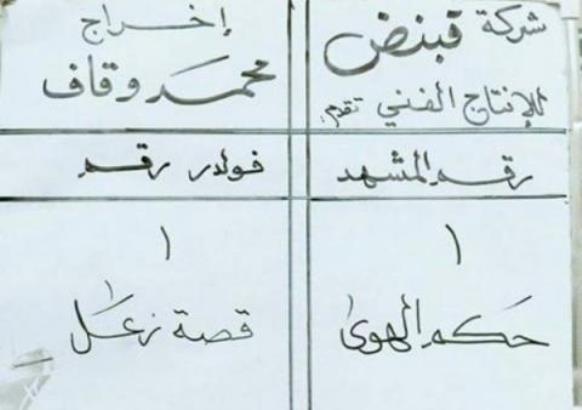 شركة قبنض
للإنتاج الفني تقدم:
إخراج
محمد وقاف
رقم المشهد
فولدر رقم
١
١
حكم الهوى
قصة زعل